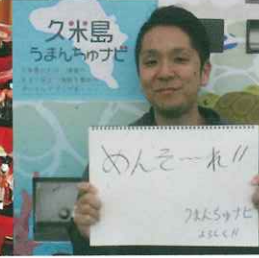 久米島
うまんちゅナビ
めんそ〜れ!!
うまんちゅナビ
よろしく!!